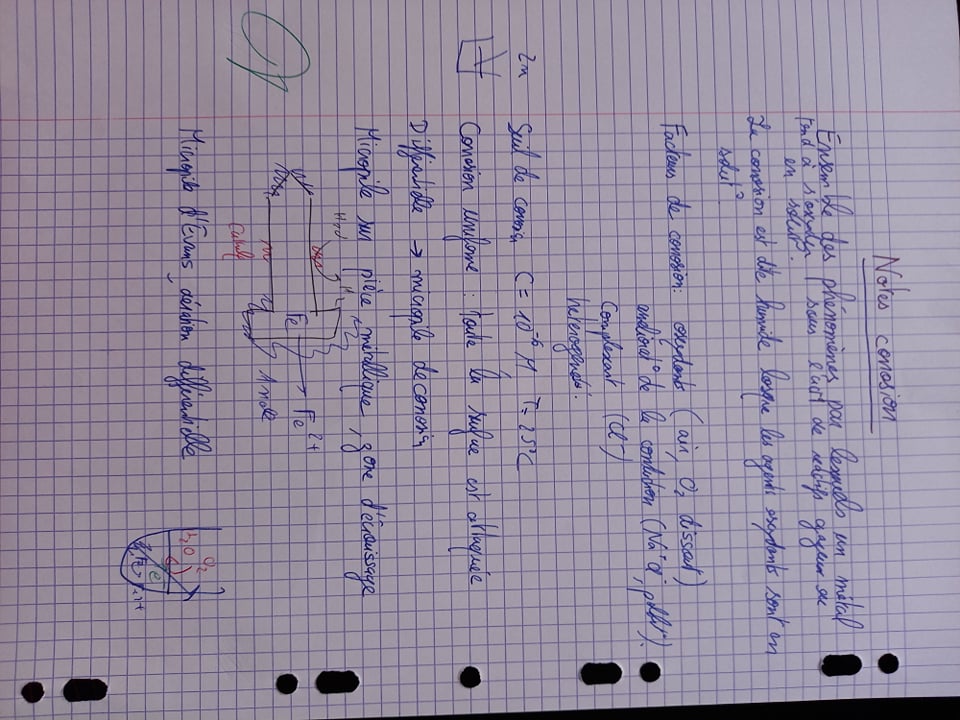 Notes corrosion
Ensemble des phénomènes par lesquels un métal
tend à s'oxyder sous l'act de réactifs gazeux ou
en solution.
La corrosion est dite humide lorsque les agents oxydants sont en
solut°
Facteurs de corrosion: oxydants (air, O2 dissout)
améliorat° de la conduction (Na+ Cl-, pollut°).
Complexant (Cl-)
hétérogénéité.
Zn
Seuil de corrosion C = 10^-6 M, T = 25°C
Corrosion Uniforme : Toute la surface est attaquée
Différentielle → micropile de corrosion
Micropile sur pièce métallique, zone d'écrouissage
Fe → Fe2+
Anode
Micropile d'Evans, aération différentielle
O2
H2O
e-